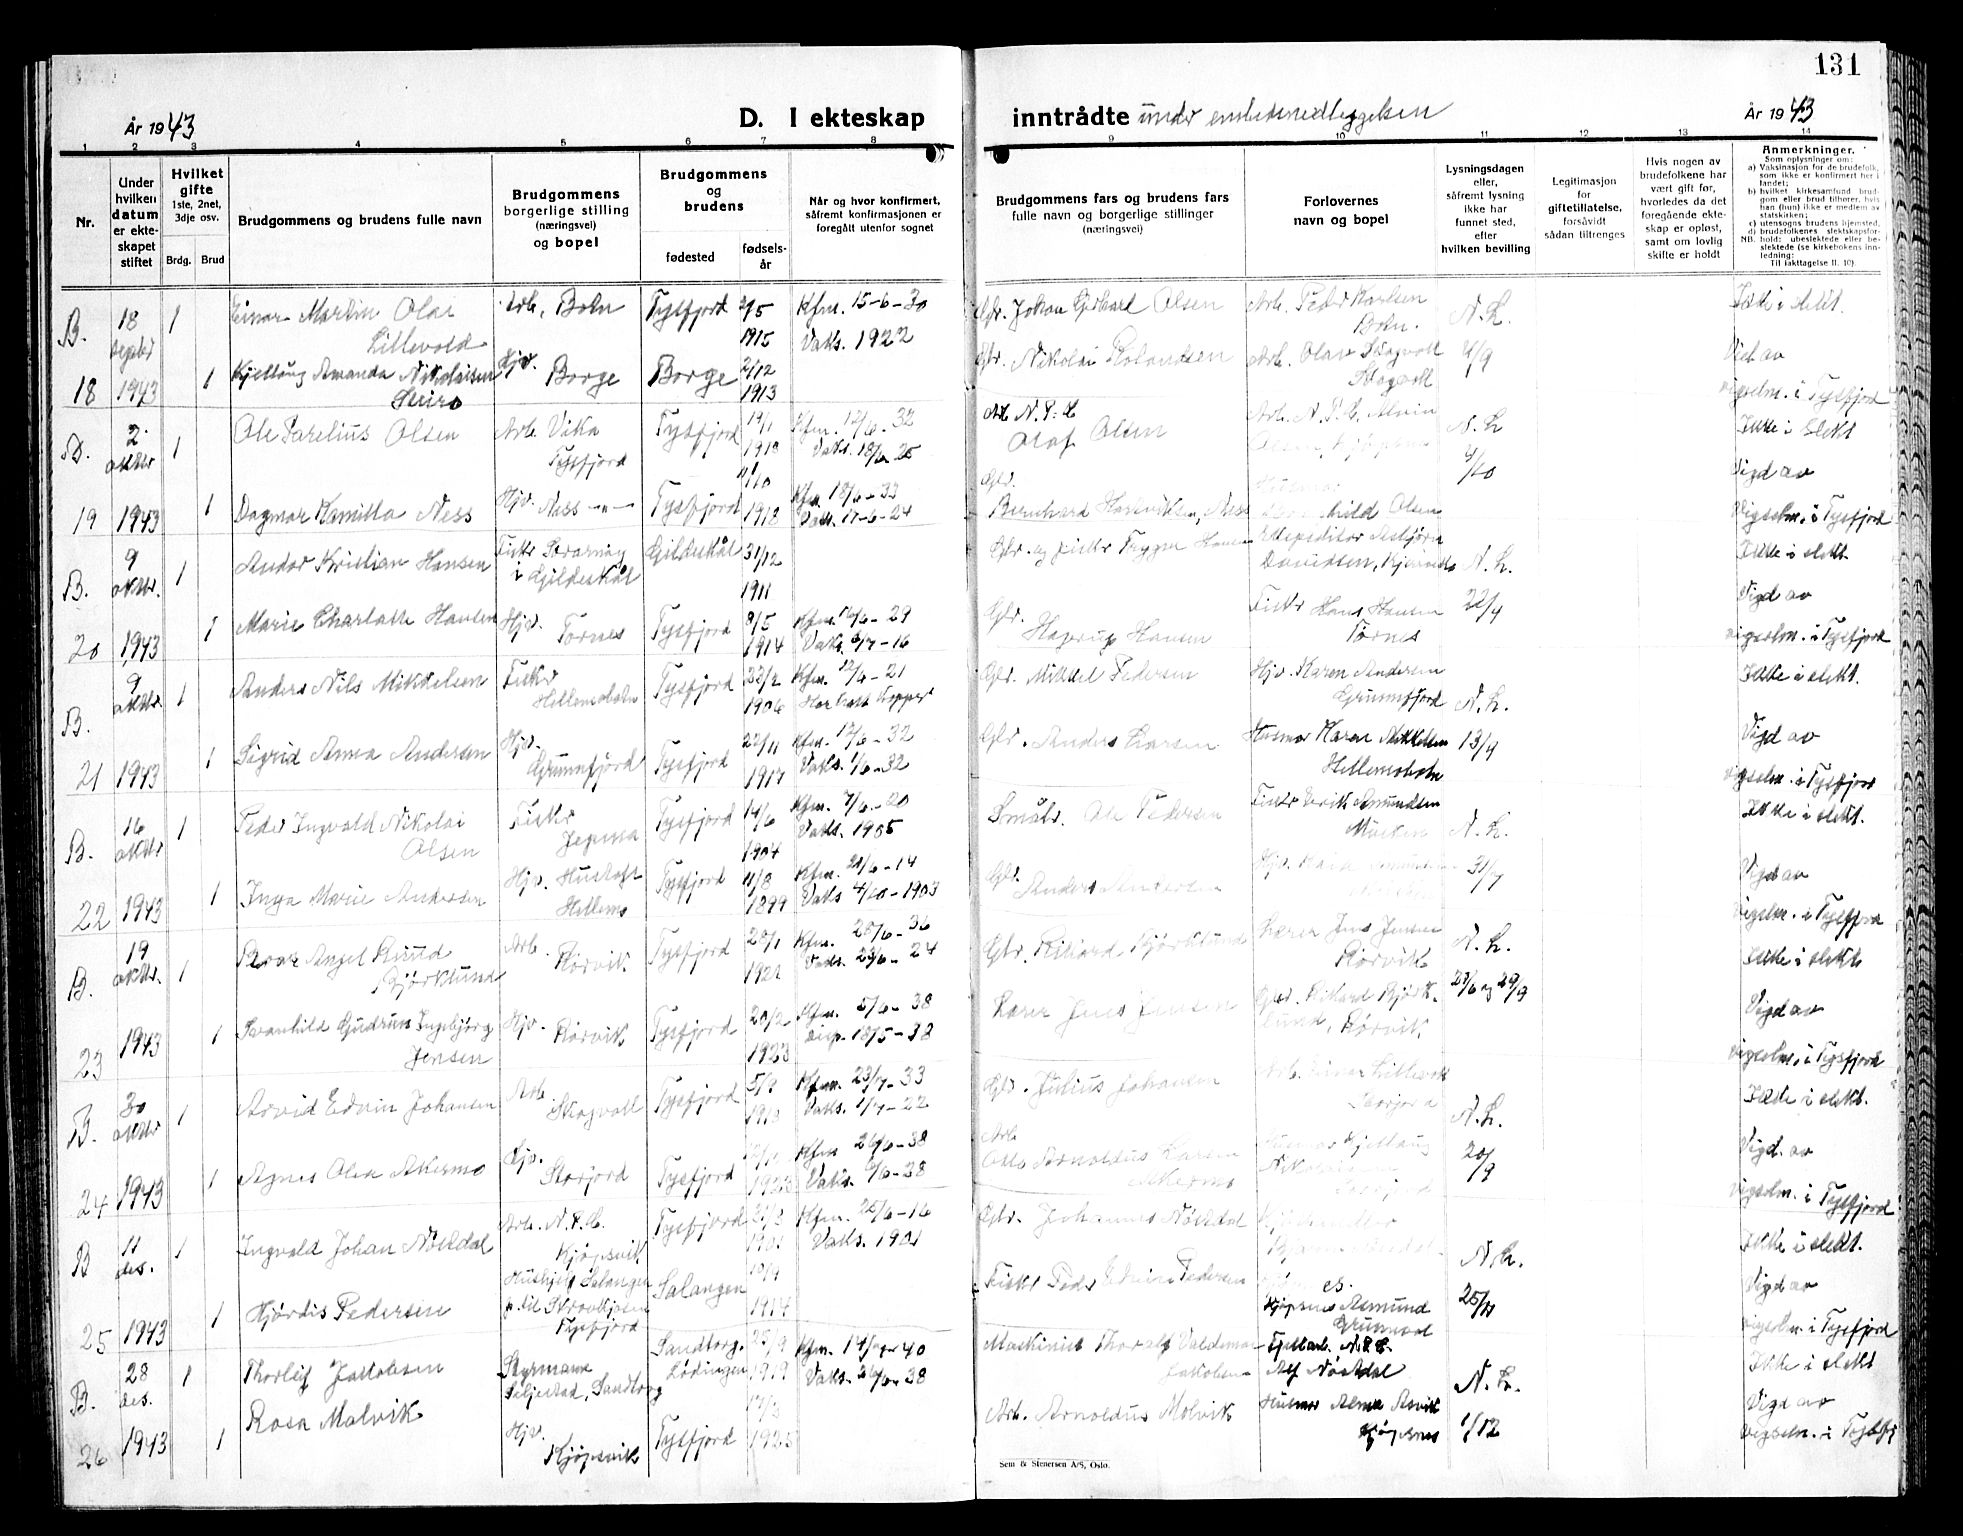 131
År 1943
D. I ekteskap inntrådte under embedsnedleggelsen
År 1943
1 2 3 4 5 6 7 8 9 10 11 12 13 14
Nr.
Under hvilken datum er ekteskapet stiftet
Hvilket gifte 1ste, 2net, 3dje osv.
Brdg. Brud
Brudgommens og brudens fulle navn
Brudgommens borgerlige stilling (næringsvei) og bopel
Brudgommens og brudens
fødested
fødselsår
Når og hvor konfirmert, såfremt konfirmasjonen er foregått utenfor sognet
Brudgommens fars og brudens fars fulle navn og borgerlige stillinger (næringsvei)
Forlovernes navn og bopel
Lysningsdagen eller, såfremt lysning ikke har funnet sted, efter hvilken bevilling
Legitimasjon for giftetillatelse, forsåvidt sådan tiltrenges
Hvis nogen av brudefolkene har vært gift før, hvorledes da det foregående ekteskap er opløst, samt om lovlig skifte er holdt
Anmerkninger.
Som oplysninger om:
a) Vaksinasjon for de brudefolk, som ikke er konfirmert her i landet;
b) hvilket kirkesamfund brudgom eller brud tilhører, hvis han (hun) ikke er medlem av statskirken;
c) utensogns brudens hjemsted,
d) brudefolkenes slektskapsforhold: ubeslektede eller beslektede (se kirkebokens innledning:
NB.
Til iakttagelse II. 10).
B. 18 septbr 1 Einar Martin Olai Lillevold Arb. Boln Tysfjord 2/5 1915 Kfm. 15-6-30 Vaks. 1922 Gbr. Johan Gerhard Olsen Arb. Peder Karlsen Boln. N.L. Ikke i slekt.
18 1943 1 Kjellaug Amanda Nikolaisen Hjv. Borge Borge 2/12 1913 Gbr. Nikolai Rolandsen Arb. Olav Skagvoll Skagvoll 4/9 Viet av vigselm. i Tysfjord
B. 2. oktbr 1 Ole Parelius Olsen Arb. Vika Tysfjord Tysfjord 19/1 1918 Kfm. 12/6-32 Vaks. 18/6-25 Arb. N.P.C. Olaf Olsen Arb. N.P.C. Alvin Olsen, N.L. Ikke i slekt
19 1943 1 Dagmar Kamilla Ness Hjv. Ness -"- Tysfjord 1918 Kfm. 18/6-33 Vaks. 17-6-24 Gbr. Bernhard Henriksen, Ness Olsen 4/10 Vigd av Vigselm. i Tysfjord
B. 9 oktbr. 1 Andor Kristian Hansen Fisker i Gildeskål Gildeskål 31/12 1911 Gbr. og fisker Trygve Hansen Ekspeditør Asbjørn Davidsen, N.L. Ikke i slekt.
20 1943 1 Marie Charlotte Hansen Hjv. Tørnes Tysfjord 8/5 1914 Kfm. 16/6-29 Vaks. 6/7-16 Gbr. Hagerup Hansen Fisker Hans Hansen Tørnes 22/9 Vigd av vigselm. i Tysfjord
B. 9 oktbr 1 Anders Nils Mikkelsen Fisker Hellemobotn Tysfjord 22/2 1906 Kfm. 12/6-21 Har hatt kopper Gbr. Mikkel Pedersen Hjv. Karen Andersen Grunnfjord N.L. Ikke i slekt.
21 1943 1 Sigrid Anna Andersen Hjv. Grunnfjord Tysfjord 22/11 1917 Kfm. 17/6-32 Vaks. 1/6-32 Gbr. Anders Larsen Husmor Karen Mikkelsen Hellemobotn 13/9 Vigd av vigselm. i Tysfjord
B. 16 oktbr 1 Peder Ingvald Nikolai Olsen Fisker Tysfjord 14/6 1904 Kfm. 7/6-20 Vaks. 1905 Småbr. Ole Pedersen Fisker Erik Amundsen Musken N.L. Ikke i slekt.
22 1943 1 Inga Marie Andersen Hjv. Hellemo Tysfjord 11/8 1899 Kfm. 21/6-14 Vaks 4/10-1903 Gbr. Anders Andersen Hjv. 31/7 Vigd av vigselm. i Tysfjord
B. 19 oktbr. 1 Angel Knud Bjørklund Arb. Rørvik Tysfjord 20/1 1921 Kfm. 28/6-36 Vaks. 23/6-24 Gbr. Rikard Bjørklund Lærer Jens Jensen Rørvik N.L. Ikke i slekt
23 1943 1 Svanhild Gudrun Ingebjørg Jensen Hjv. Rørvik Tysfjord 20/2 1923 Kfm. 5/6-38 18/5-38 Lærer Jens Jensen Gbr. Rikard Bjørklund, Rørvik. 27/6 og 29/9 Vigd av vigselm. i Tysfjord
B. 30 oktbr 1 Arvid Edvin Johansen Arb. Skagvoll Tysfjord 5/3 1918 Kfm. 23/7-33 Vaks. 1/7-22 Gbr. Julius Johansen Arb. Einar Lillevold Storjord N.L. Ikke i slekt.
24 1943 1 Agnes Olea Akermo Hjv. Storjord Tysfjord 1923 Kfm 26/6-38 Vaks. 6/6-38 Arb. Otto Arnoldus Larsen Akermo Husmor Kjellaug Nikolaisen Storjord 20/9 Vigd. av vigselm. i Tysfjord
B 11 des. 1 Ingvald Johan Nöstdal Arb. N.P.C. Kjøpsvik Tysfjord 21/3 1901 Kfm. 25/6-16 Vaks. 1901 Gbr. Johannes Nöstdal N.L. Ikke i slekt.
25 1943 1 Hjørdis Pedersen Hushjelp Salangen Tysfjord Salangen 10/9 1914 Fisker Peder Edvin Pedersen Kjøpsnes Asmund 25/11 Vigd av vigselm. i Tysfjord
B. 28 des. 1 Thorleif Jakobsen Styrmann Seljestad, Sandtorg Sandtorg Lødingen 25/9 1919 Kfm. 14/ 40 Vaks. 26/6-38 Maskinist Thoralf Valdemar Jakobsen Fjellarb. N.P.C. Alf Nöstdal N.L. Ikke i slekt
26 1943 1 Rosa Molvik Hjv. Kjøpsvik Tysfjord 17/3 1925 Arb. Arnoldus Molvik Husmor Alma Asvik Kjøpsnes 1/12 Vigd av vigselm. i Tysfj
Sem & Stenersen A/S, Oslo.